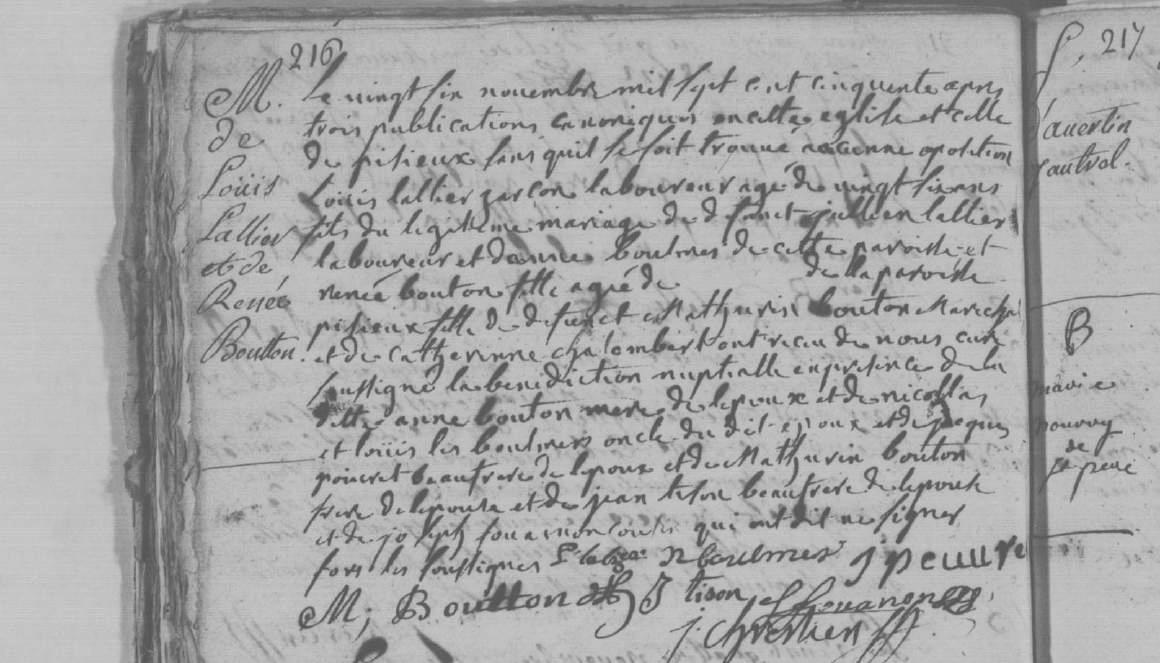 216
M.
de
Loüis
Lallier
et de
Renée
Boutton.
Le vingt six novembre mil sept cent cinquente apres
trois publications canoniques en cette eglise et celle
de pisieux sans quil se soit trouvé aucunne oposition
Loüis lallier garcon laboureur agé de vingt six ans
fils du legitteme mariage de defunct jullien lallier
laboureur et danne boulmes de cette paroisse et
renée bouton fille agée de de la paroisse
pisieux fille de defunct Mathurin bouton Marechal
et de catherinne chalombert ont recu de nous curé
soussigné la benediction nuptialle en presence de la
ditte anne bouton mere de lepoux et de nicollas
et loüis les boulmers oncle du dit epoux et de jacques
poivret beaufrere de lepoux et de Mathurin bouton
frere de lepouse et de jean tison beaufrere de lepouse
et de joseph fouasnon cousin qui ont dit ne signer
fors les soussignes N boulmer j peuuré
M; Boutton J tison fhouanon
j. Chrestien
f. 217
d'avertin
gautrol.
B
marie
nouvoy
de